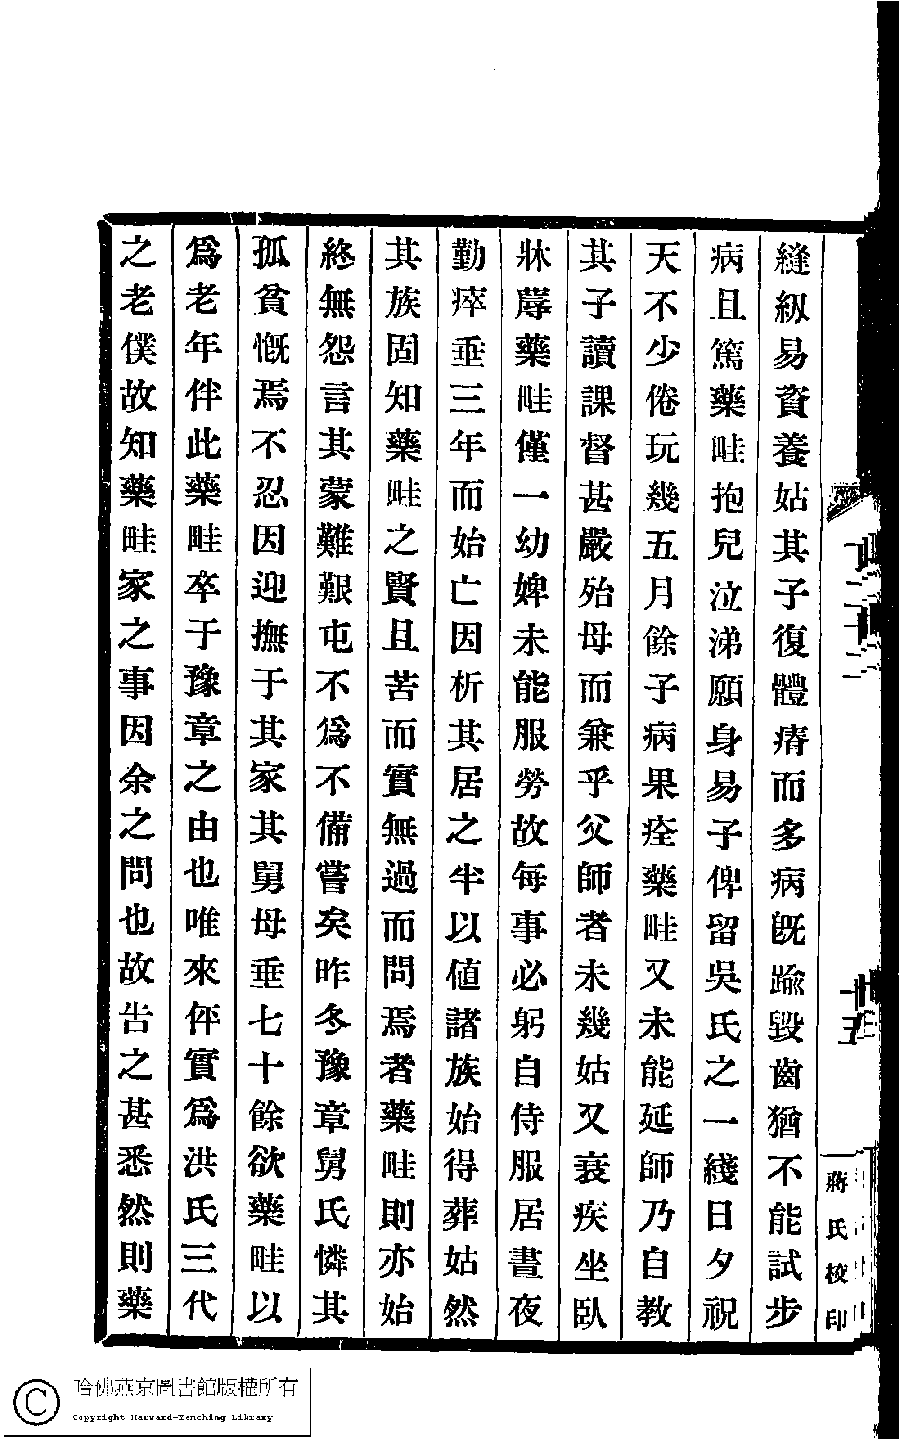 縫紉易資養姑其子復體瘠而多病旣踰毀齒猶不能試步
病且篤藥畦抱兒泣涕願身易子俾留吳氏之一綫日夕祝
天不少倦玩幾五月餘子病果痊藥畦又未能延師乃自教
其子讀課督甚嚴殆母而兼乎父師者未幾姑又衰疾坐臥
牀蓐藥畦僅一幼婢未能服勞故每事必躬自侍服居晝夜
勤瘁垂三年而始亡因析其居之半以値諸族始得葬姑然
其族固知藥畦之賢且苦而實無過而問焉者藥畦則亦始
終無怨言其蒙難艱屯不爲不備嘗矣昨冬豫章舅氏憐其
孤貧慨焉不忍因迎撫于其家其舅母垂七十餘欲藥畦以
爲老年伴此藥畦卒于豫章之由也唯來伻實爲洪氏三代
之老僕故知藥畦家之事因余之問也故告之甚悉然則藥
蔣氏校印
哈佛燕京圖書館版權所有
Copyright Harvard-Yenching Library